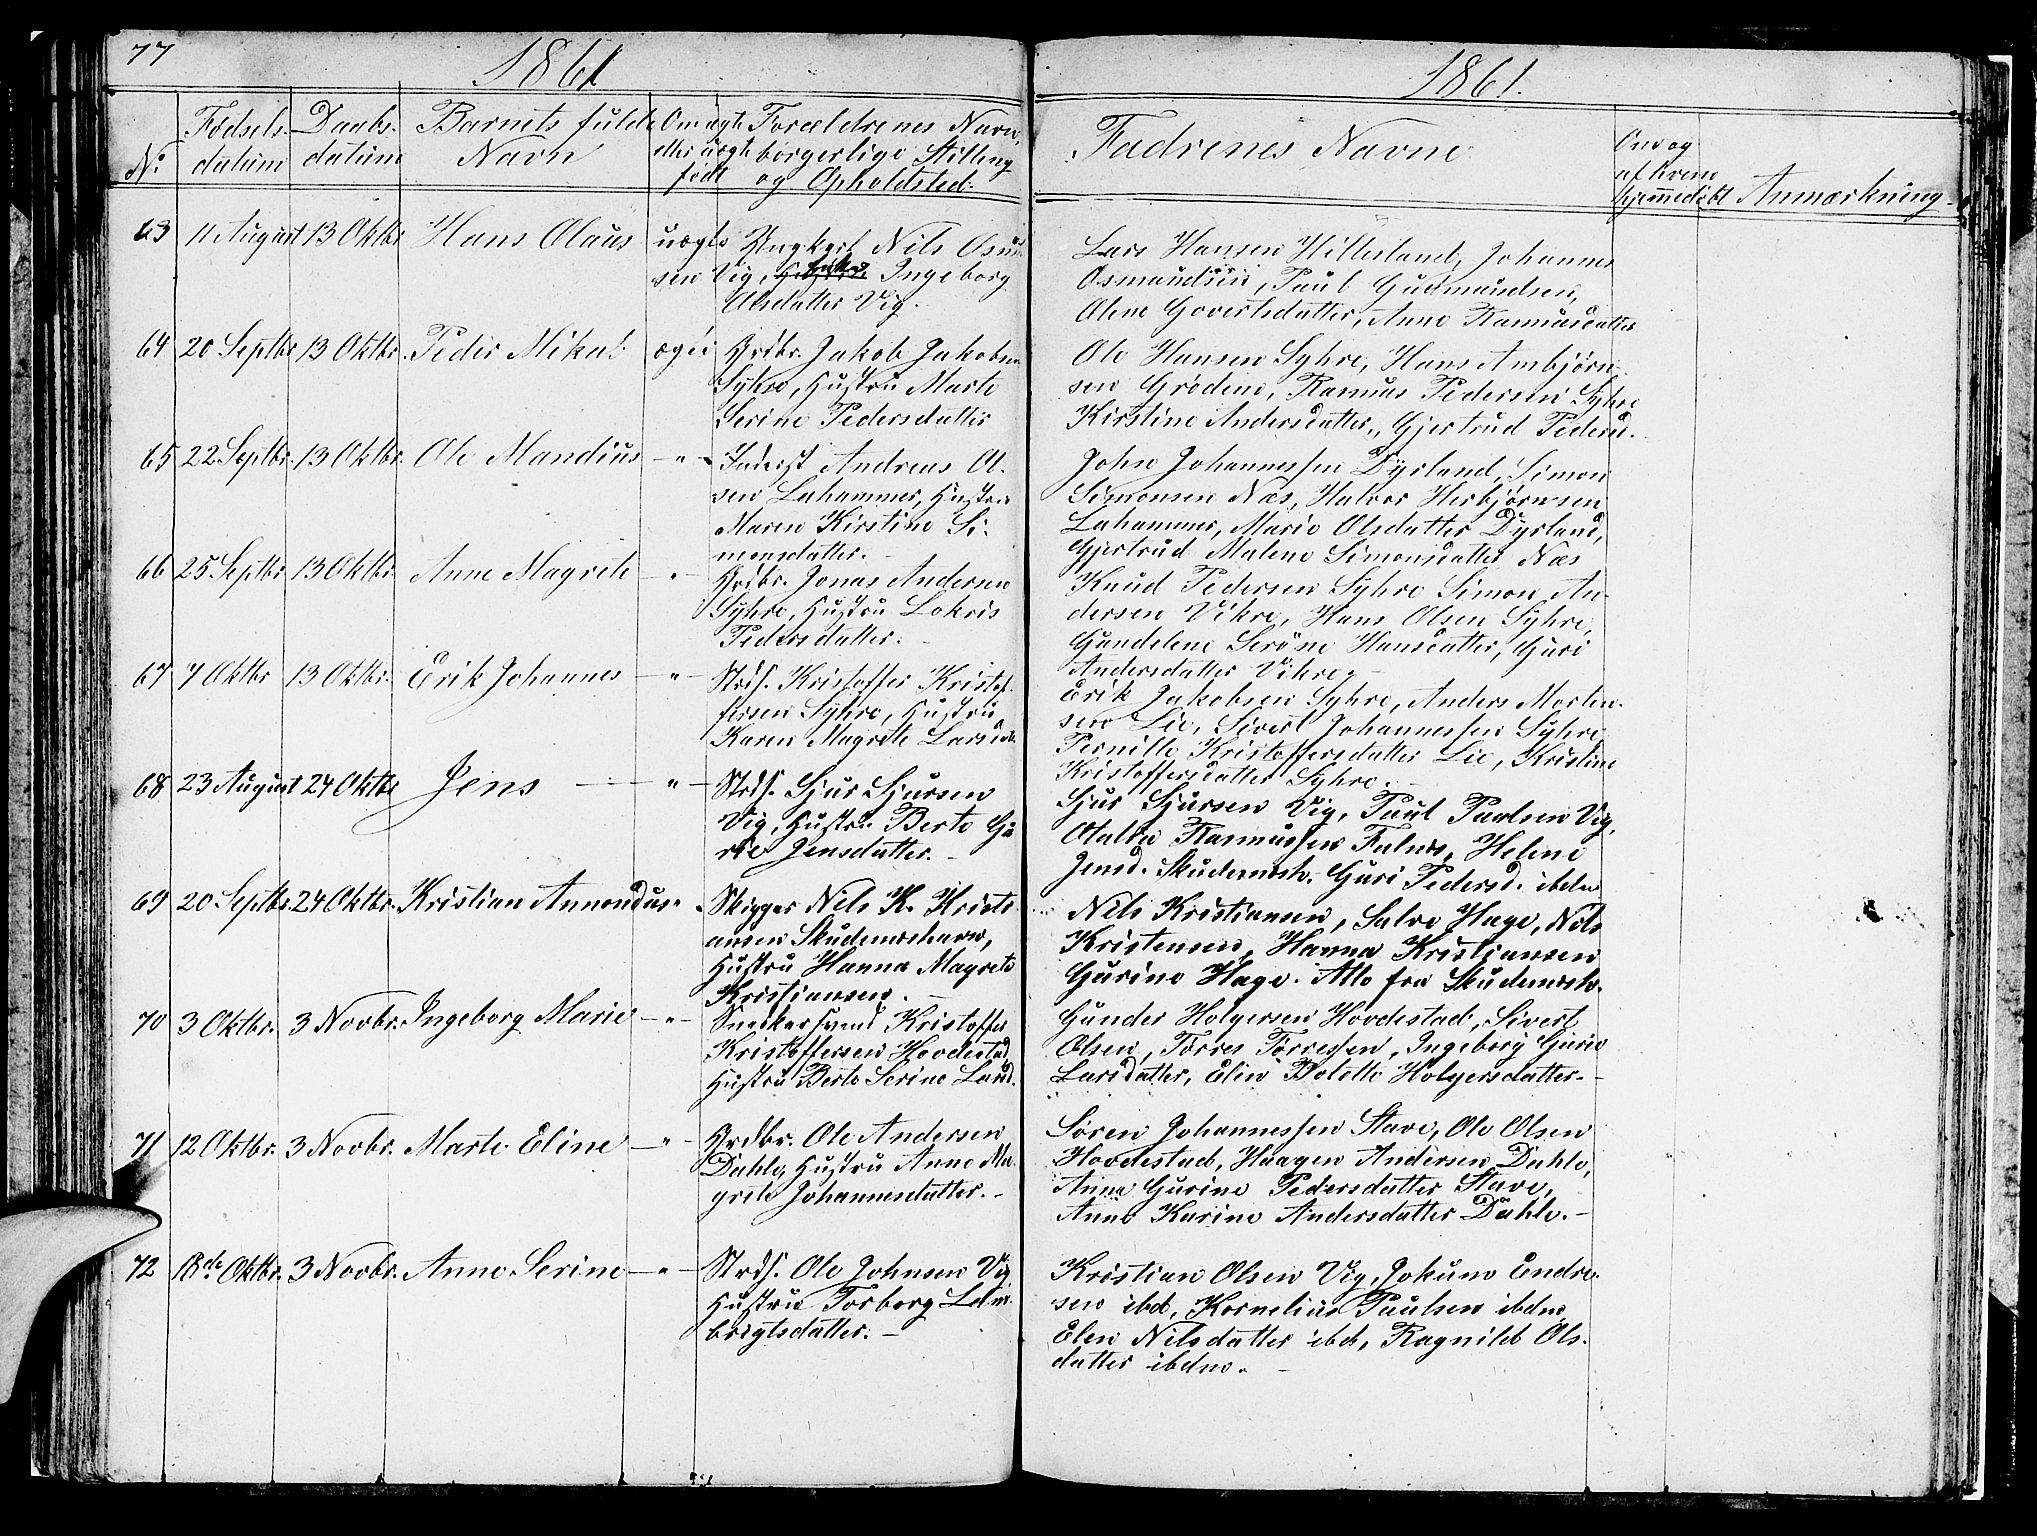 77
1861
No
Fødsels-
datum
Daabs-
datum
Barnets fulde
Navn
Om ægte
eller uægte
født
Forældrenes Navn,
borgerlige Stilling
og Opholdsted.
63 11 August 13 Oktbr Hans Olaus uægte Ungkarl Nils Osmun-
sen Vig, Ingeborg
Olsdatter Vig.
64 20 Septbr 13 Oktbr. Peder Mikal ægte Grdbr. Jakob Jakobsen
Syhre, Hustru Marte
Serine Pedersdatter
65 22 Septbr. 13 Oktbr. Ole Mandius - " - Inderst Andreas Ol-
sen Lahammer, Hustru
Maren Kirstine Si-
monsdatter. -
66 25 Septbr 13 Oktbr. Anne Magrete - " - Grdbr. Jonas Andersen
Syhre, Hustru Lokris
Pedersdatter. -
67 7 Oktbr 13 Oktbr. Erik Johannes - " - Strds. Kristoffer Kristof-
fersen Syhre, Hustru
Karen Magrete Larsdatt.
68 23 August 24 Oktbr Jens - " - Strds. Sjur Sjursen
Vig, Hustru Berte Gu-
rie Jensdatter. -
69 20 Septbr. 24 Oktbr. Kristian Annondus " - Skipper Nils K. Kristi-
ansen Skudesneshavn,
Hustru Hanna Magrete
Kristiansen. -
70 3 Oktbr. 3 Novbr. Ingeborg Marie - " - Snedkersvend Kristoffer
Kristoffersen Hovdestad,
Hustru Berte Serine Larsd.
71 12 Oktbr. 3 Novbr. Marte Eline - " - Grdbr. Ole Andersen
Dahle, Hustru Anne Ma-
grete Johannesdatter. -
72 18de Oktbr. 3 Novbr. Anne Serine - " - Strds. Ole Johnsen Vig,
Hustru Torborg Lem-
brigtsdatter. -
1861.
Fadrenes Navne
Om og
af hvem
hjemmedøbt
Anmærkning.
Lars Hansen Hilleland, Johannes
Osmundsen, Paul Gudmundsen,
Olene Govertsdatter, Anne Rasmusdatter
Ole Hansen Syhre, Hans Ambjørn-
sen Grødem, Rasmus Pedersen Syhre
Kirstine Andersdatter, Gjertrud Pedersd.
John Johannessen Dyrland, Simon
Simonsen Næs, Halvor Herbjørnsen
Lahammer, Marie Olsdatter Dyrland,
Gjertrud Malene Simonsdatter Næs
Knud Pedersen Syhre Simon An-
dersen Vikre, Hans Olsen Syhre,
Gundelene Serine Hansdatter, Guri
Andersdatter Vikre. -
Erik Jakobsen Syhre, Anders Morten-
sen Lie, Sivert Johannessen Syhre
Pernille Kristoffersdatter Lie, Kristine
Kristoffersdatter Syhre. -
Sjur Sjursen Vig, Paul Paulsen Vig,
Rasmussen Falnes, Helene
Jensd. Skudesnesh. Guri Pedersd. ibdm
Nils Kristiansen, Salve Hage, Nils
Kristensen, Hanna Kristiansen
Gurine Hage. Alle fra Skudesnesh.
Gunder Holgersen Hovdestad, Sivert
Olsen, Torres Torressen, Ingeborg Gurie
Larsdatter, Elen Bolette Holgersdatter. -
Søren Johannessen Stave, Ole Olsen
Hovdestad, Haagen Andersen Dahle,
Anna Gurine Pedersdatter Stave,
Anne Karine Andersdatter Dahle. -
Kristian Olsen Vig, Jokum Endre-
sen ibd, Kornelius Paulsen ibdm
Elen Nilsdatter ibd, Ragnild Ols-
datter ibdm. -